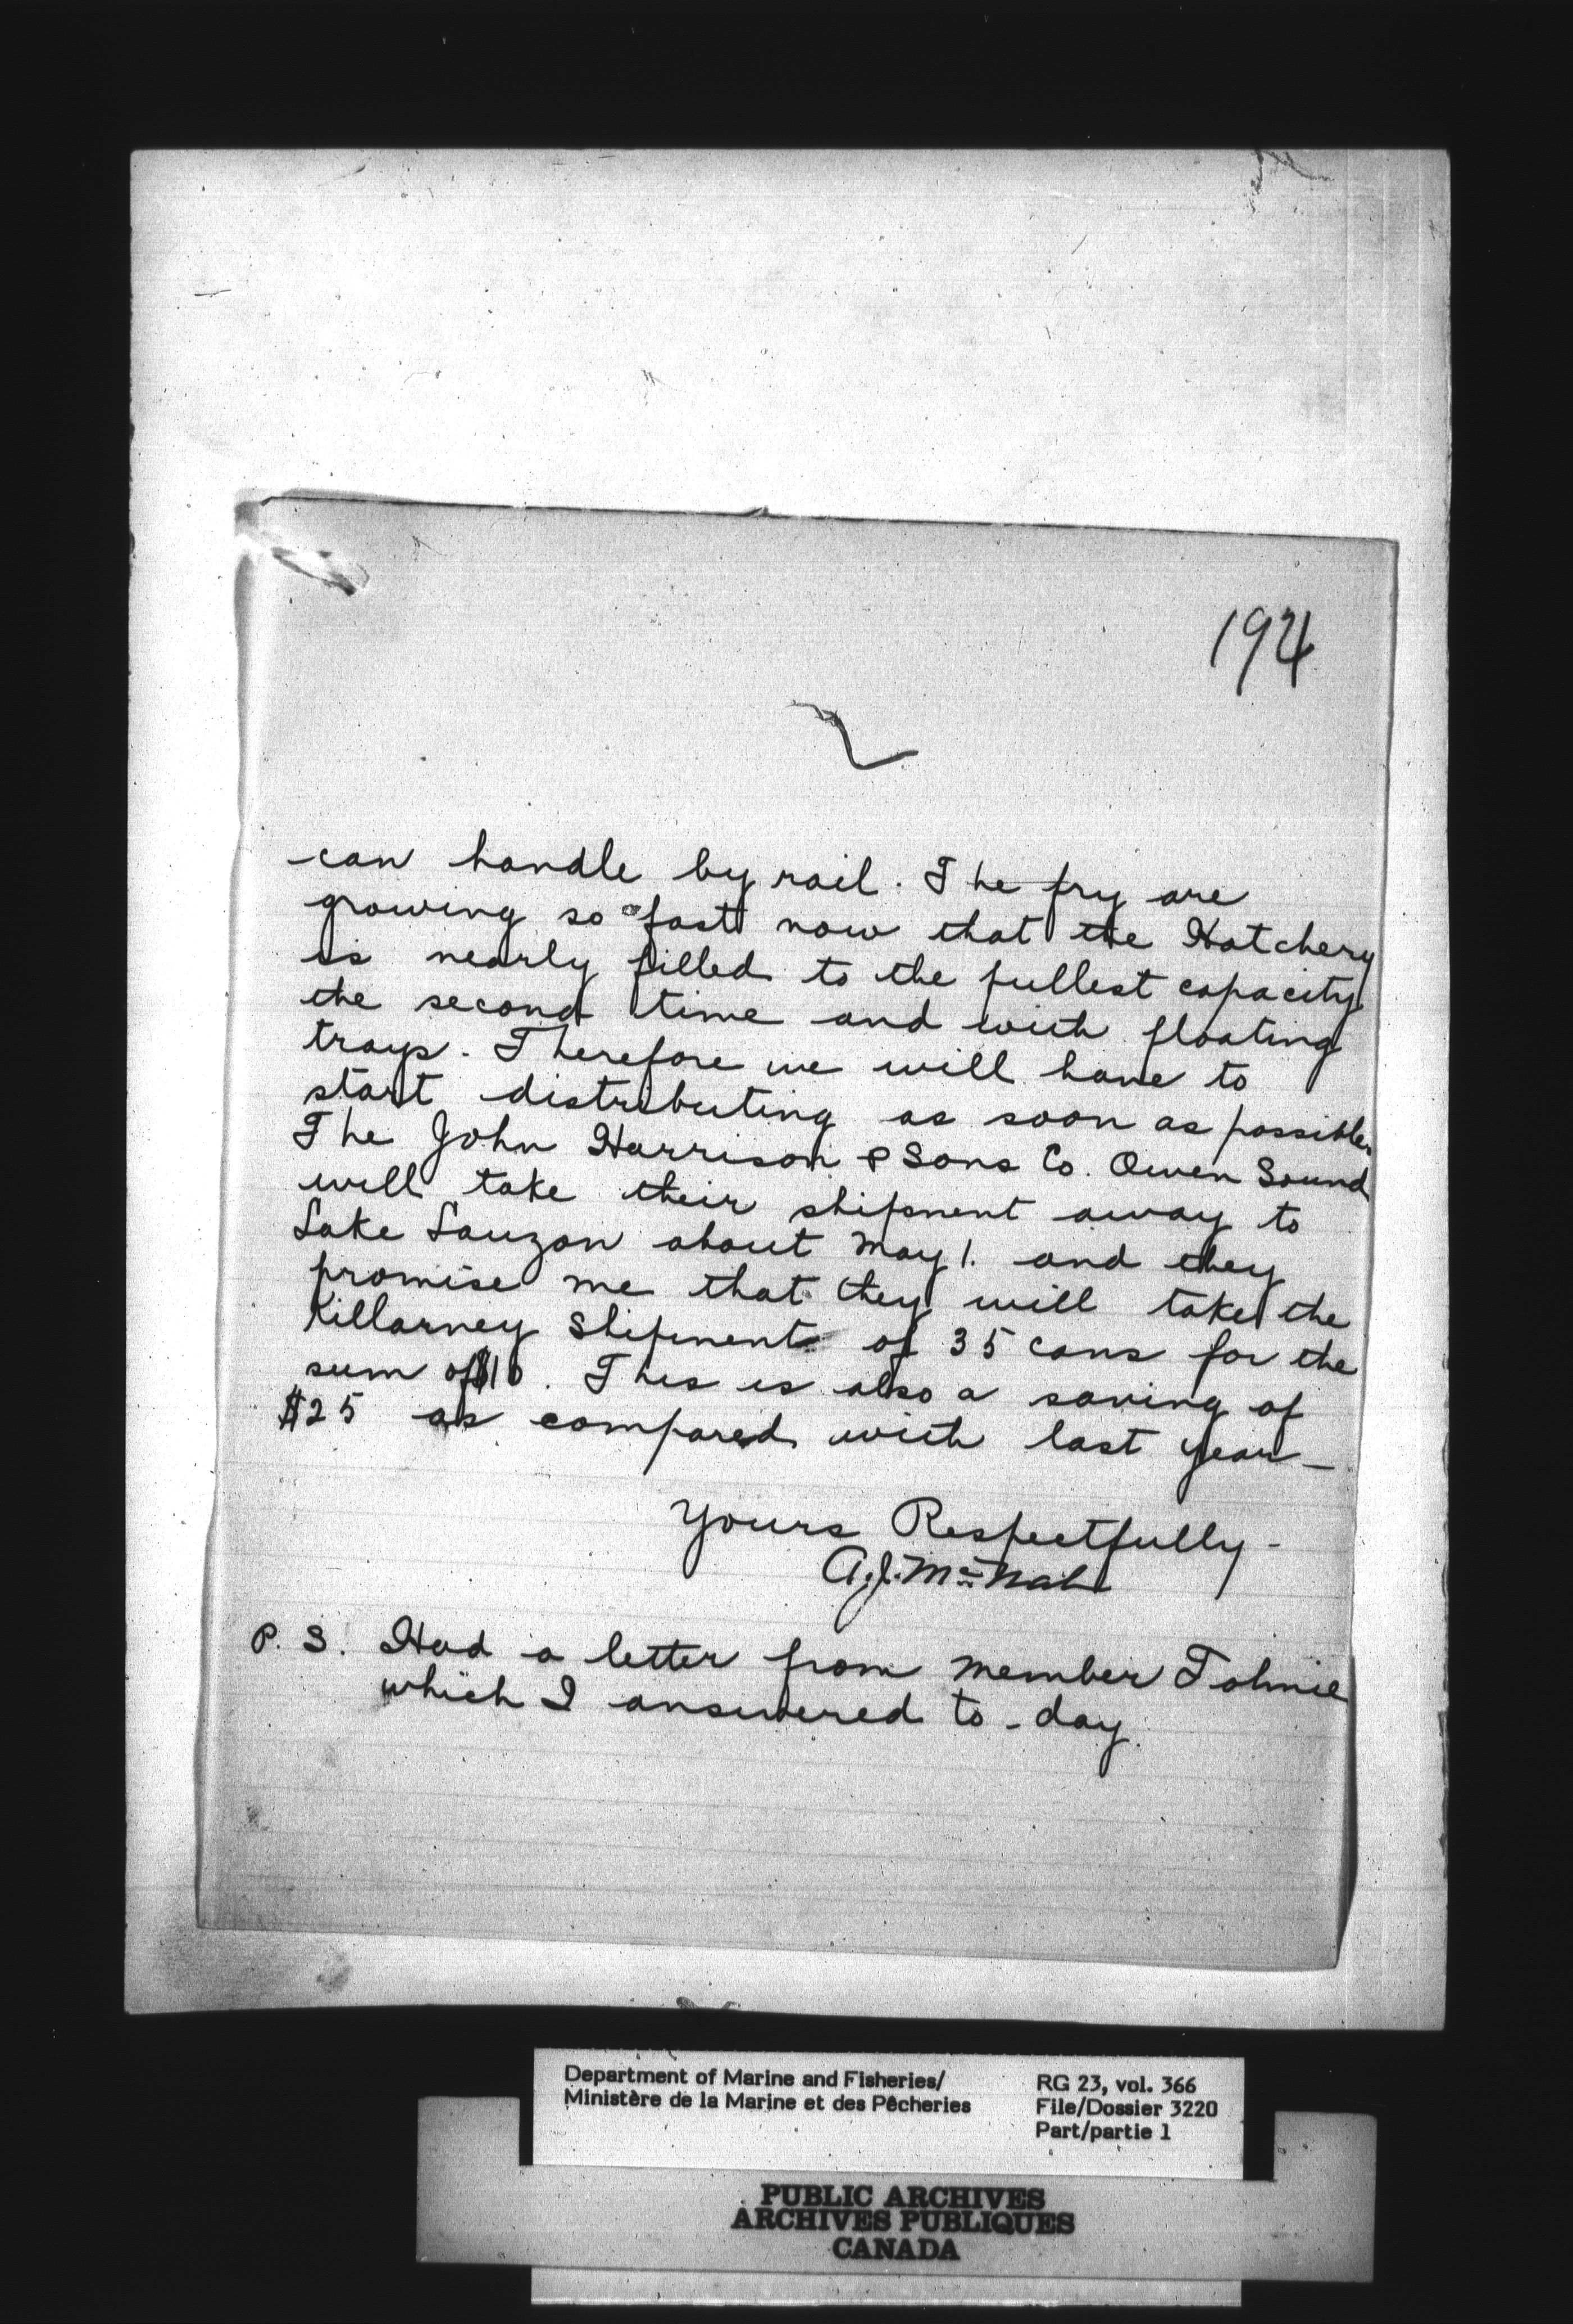 194
2
can handle by rail. The fry are
growing so fast now that the Hatchery
is nearly filled to the fullest capacity
the second time and with floating
trays. Therefore we will have to
start distributing as soon as possible.
The John Harrison & Sons Co. Owen Sound
will take their shipment away to
Lake Lauzon about May 1. and they
promise me that they will take the
Killarney Shipment of 35 cans for the
sum of $10. This is also a saving of
$25 as compared with last year –
Yours Respectfully -
A.J. McNab
P. S. Had a letter from member Tolmie
which I answered to-day.
Department of Marine and Fisheries/
Ministère de la Marine et des Pêcheries
RG 23, vol. 366
File/Dossier 3220
Part/partie 1
PUBLIC ARCHIVES
ARCHIVES PUBLIQUES
CANADA